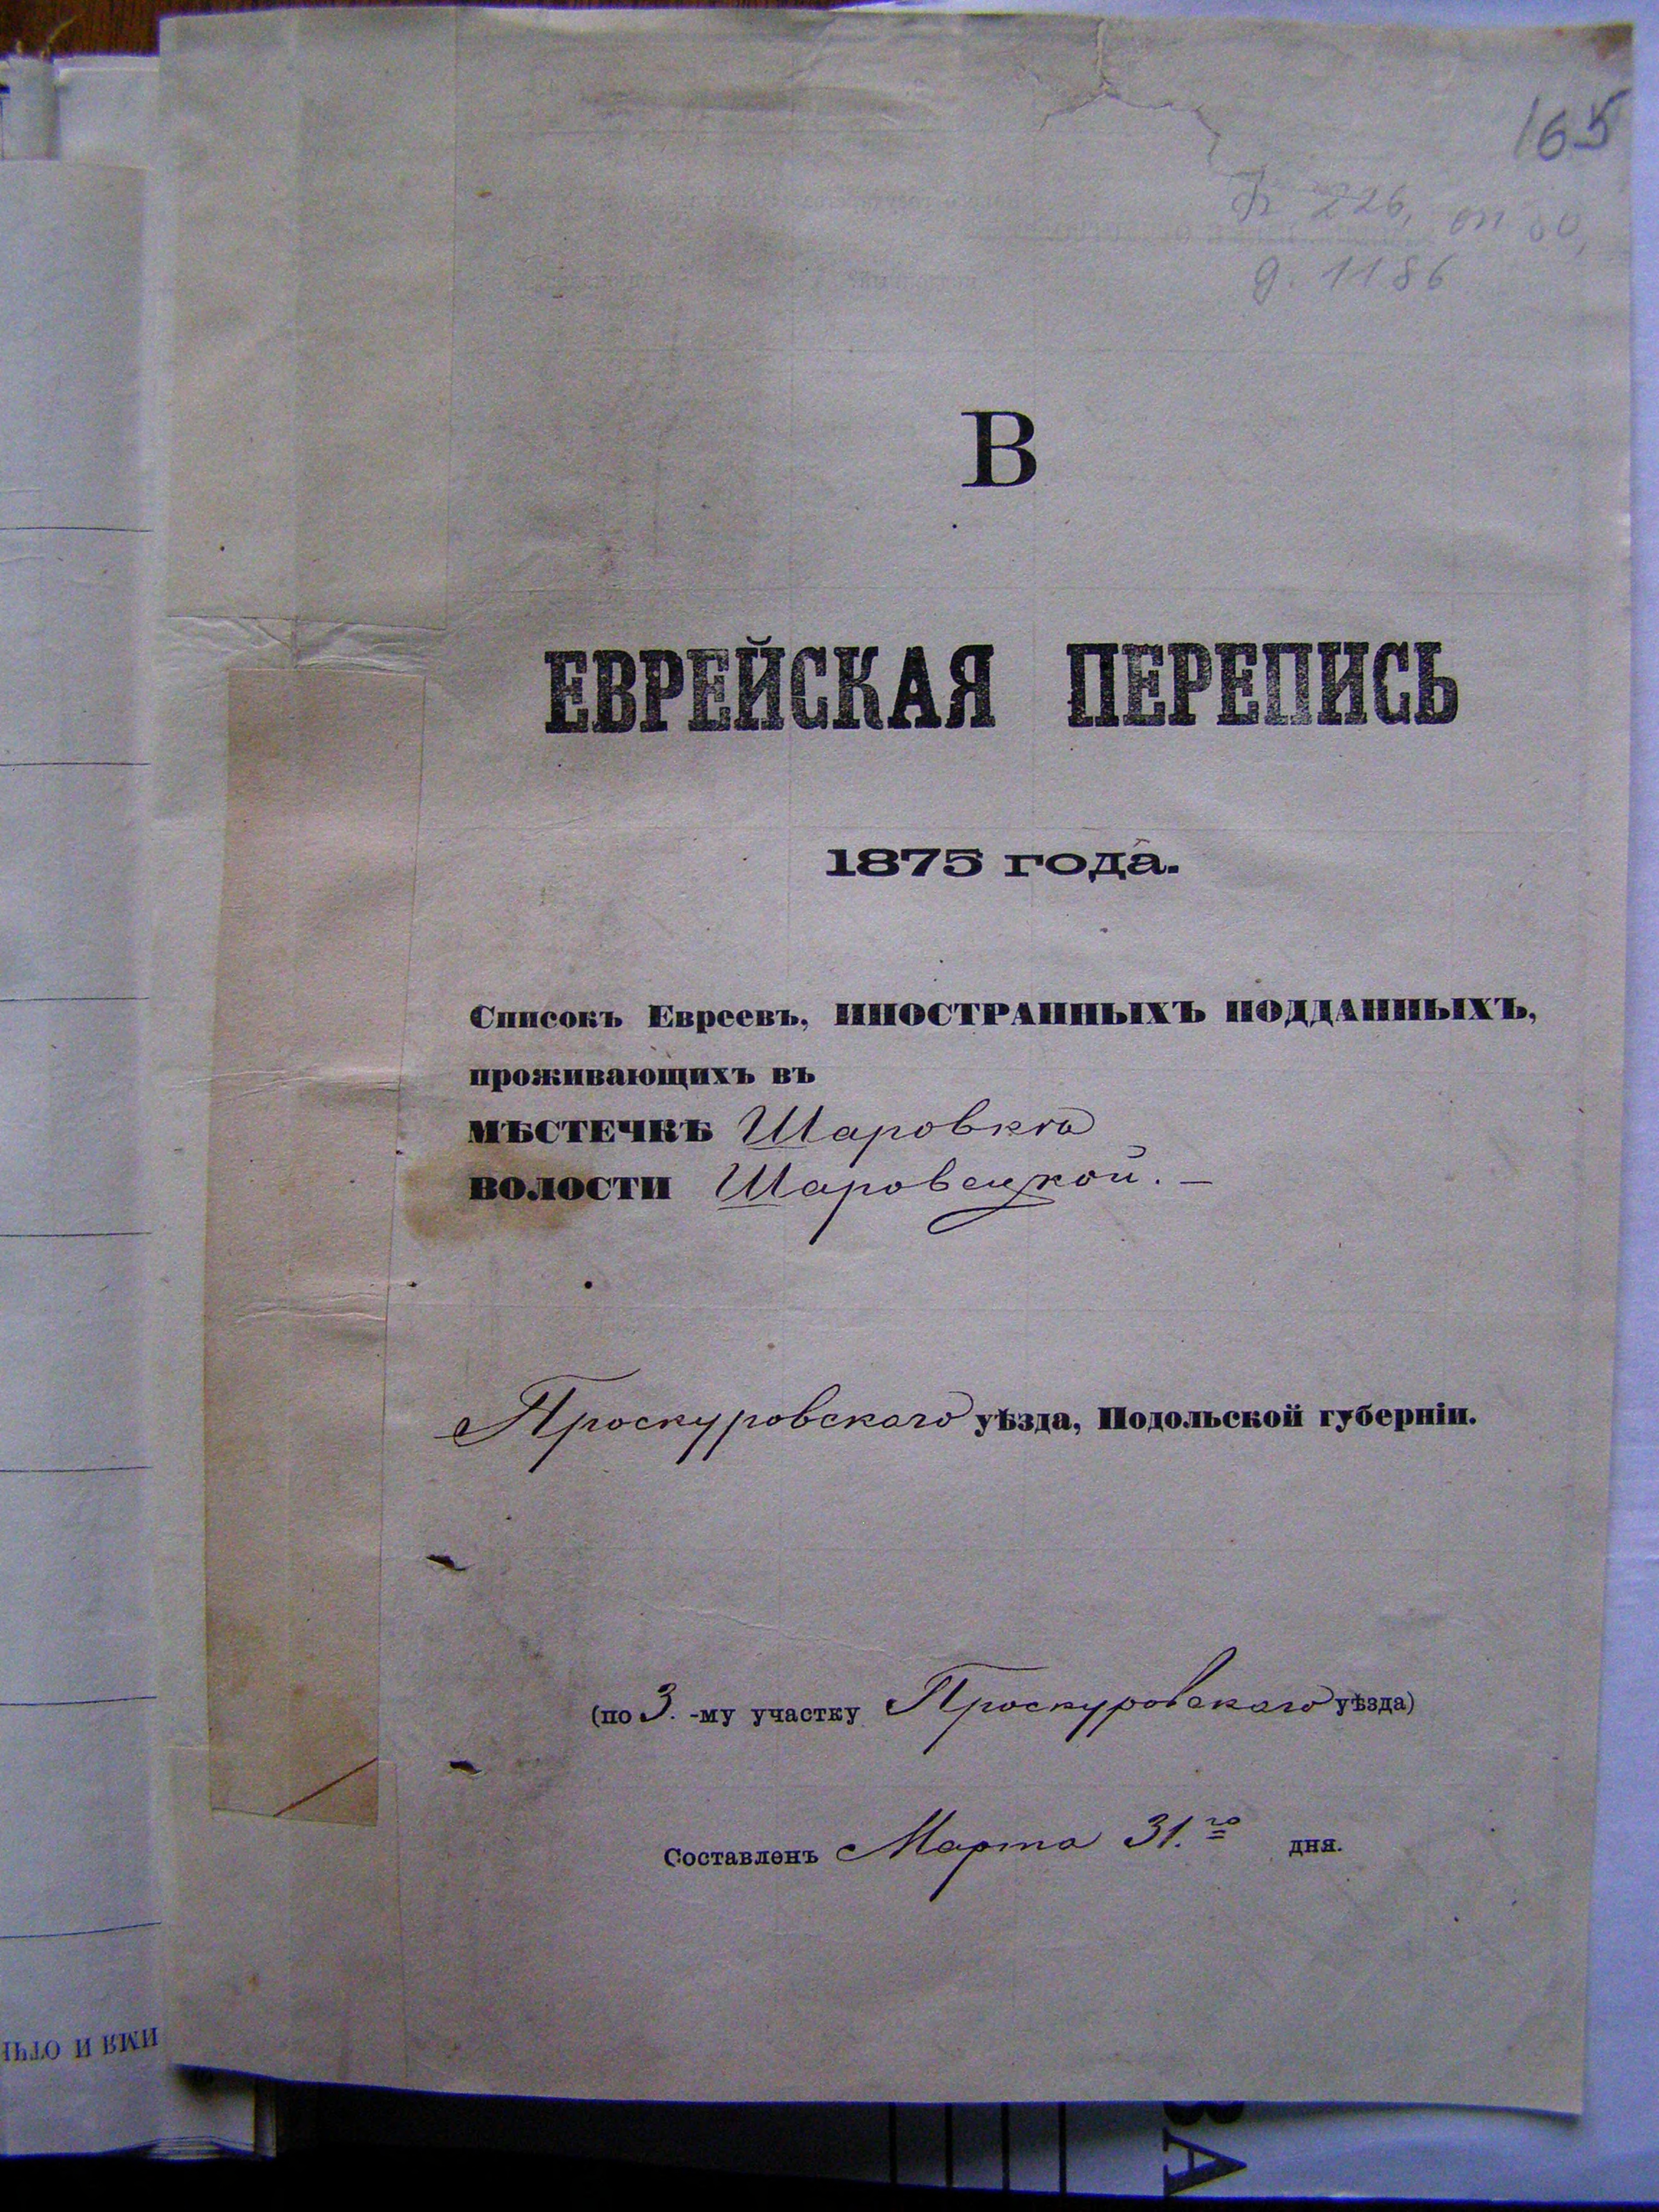 165
226, оп
д. 1186
В
ЕВРЕЙСКАЯ ПЕРЕПИСЬ
1875 года.
Списокъ Евреевъ, ИНОСТРАННЫХЪ ПОДДАННЫХЪ,
проживающихъ въ
МѢСТЕЧКѢ Шаровкѣ
ВОЛОСТИ Шаровецкой. —
Проскуровскаго уѣзда, Подольской губерніи.
(по 3. -му участку Проскуровскаго уѣзда)
Составленъ Марта 31.го дня.
ИМЯ И ОТЧ
ВА